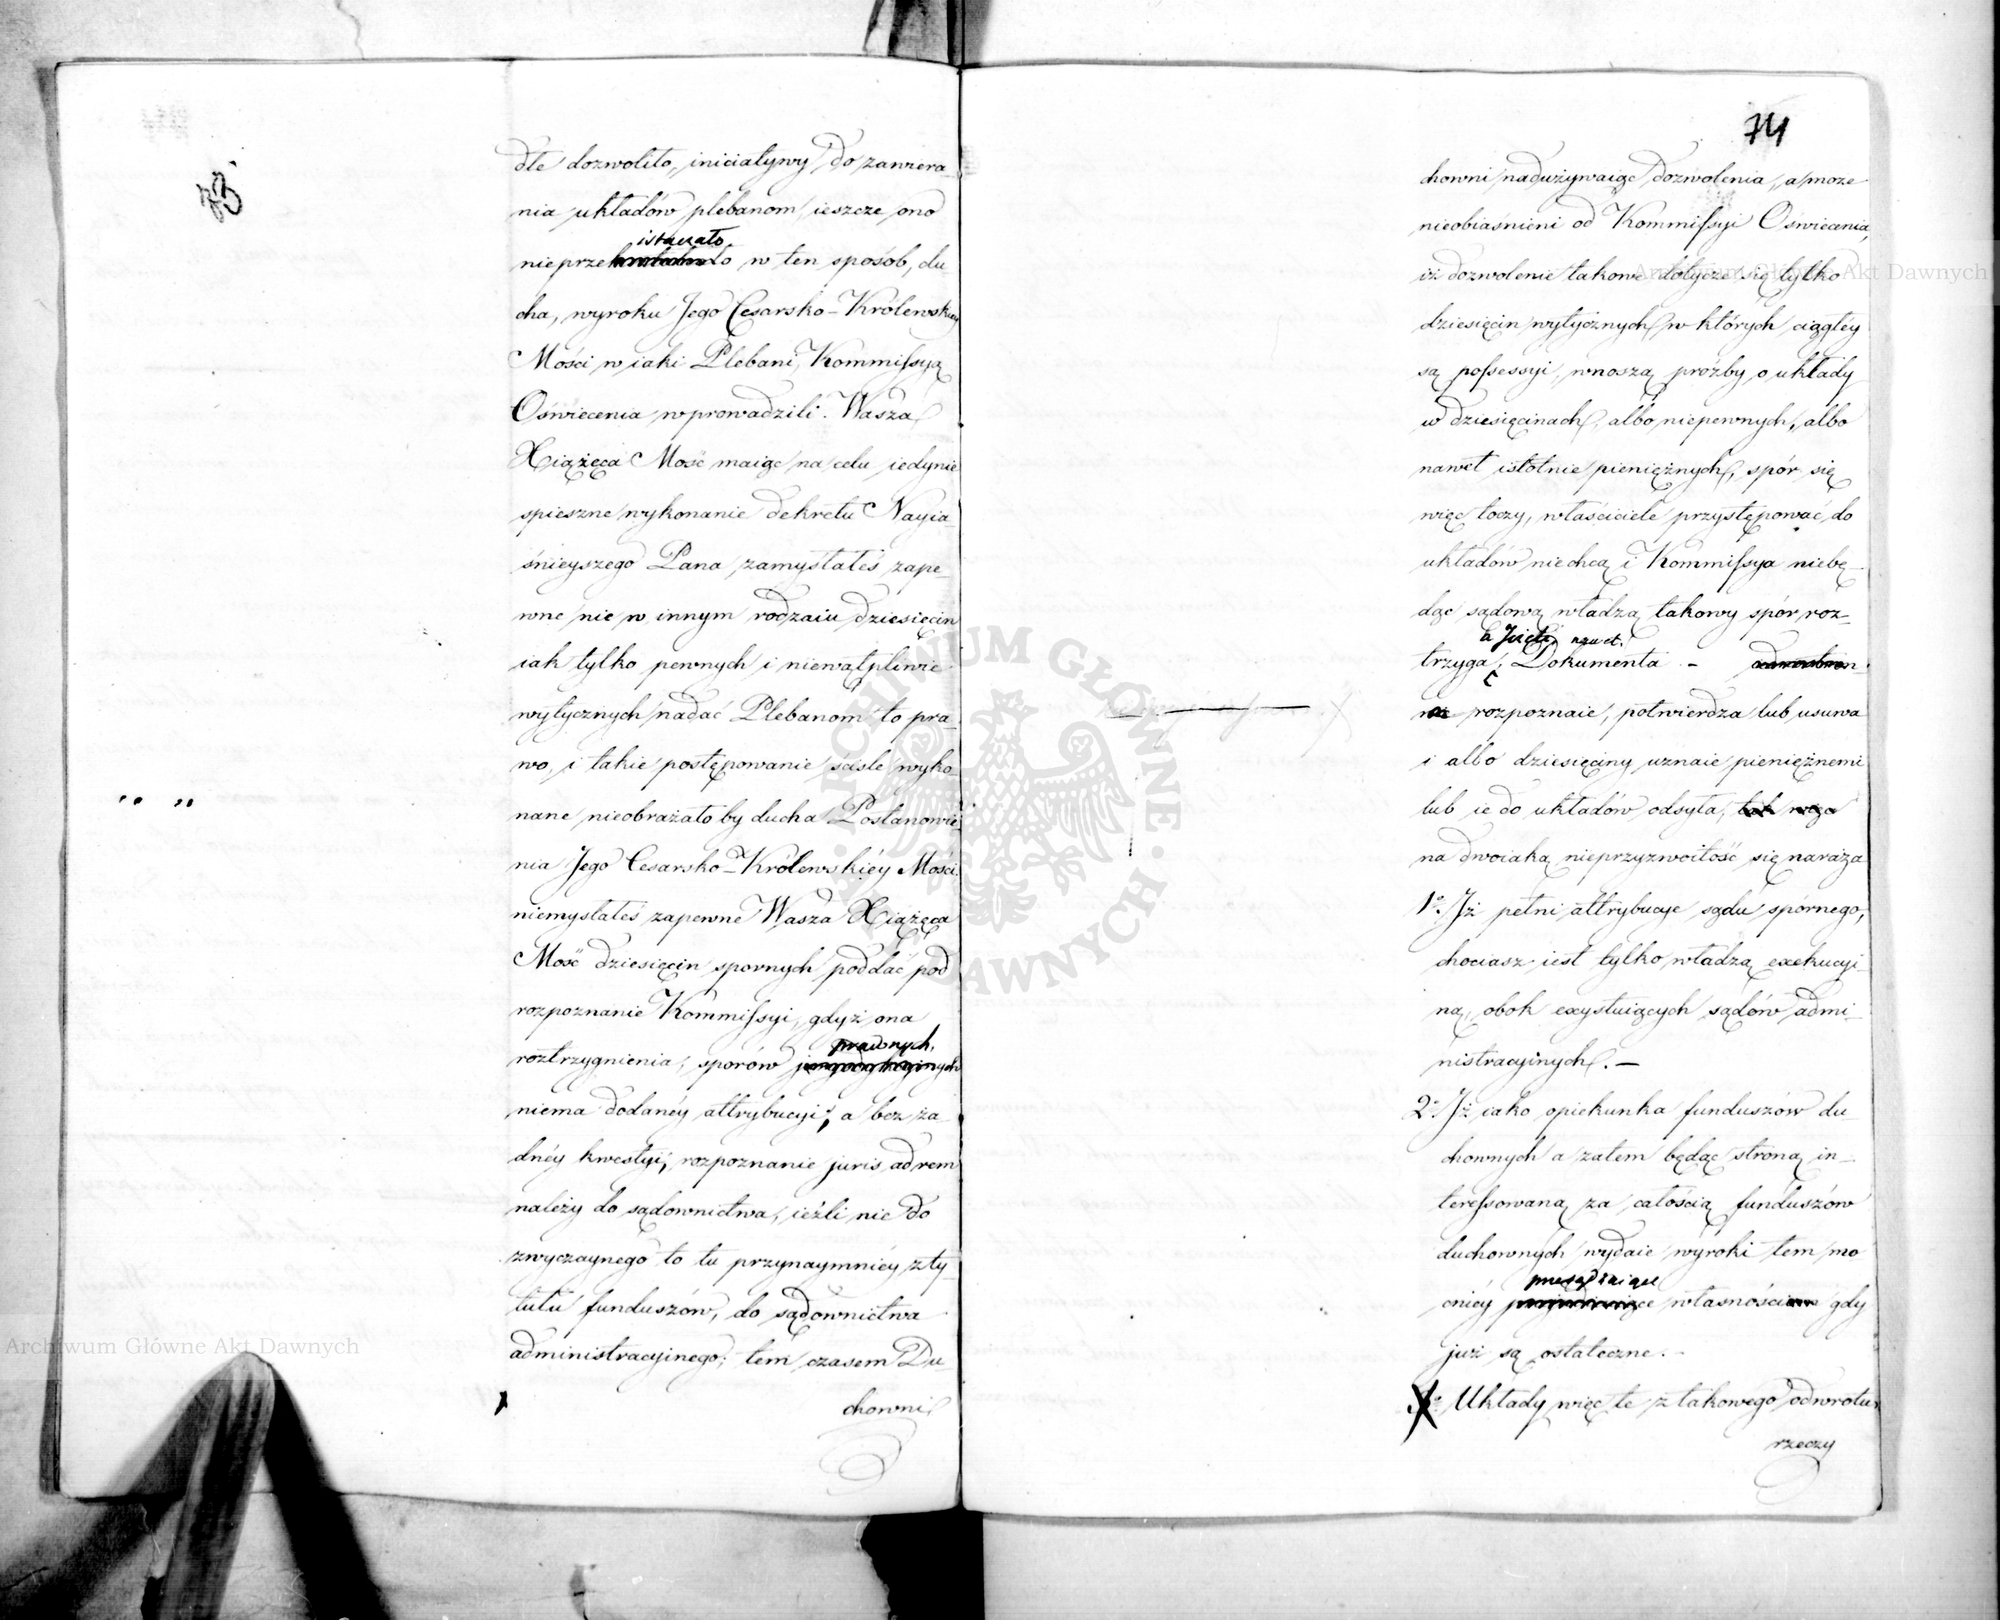 73
dle dozwoliło, iniciatywy do zawiera-
nia układów plebanom ieszcze ono
istaczało
nieprze to w ten sposób, du
cha, wyroku Jego Cesarsko-Królewskiey
Mości w iaki Plebani, Kommissyą
Oświecenia wprowadzili. Wasza
Xiążęca Mość maiąc na celu iedynie
spieszne wykonanie dekretu Nayia-
śnieyszego Pana zamyślałeś zape-
wne nie w innym rodzaiu dziesięcin
iak tylko pewnych i niewątpliwie
wytycznych nadać Plebanom to pra-
wo, i takie postępowanie ściśle wyko-
nane nieobrażało by ducha Postanowie-
nia Jego Cesarsko-Królewskiéy Mości
niemyślałeś zapewne Wasza Xiążęca
Mość dziesięcin spornych poddać pod
rozpoznanie Kommissyi, gdyż ona
prawnych,
roztrzygnienia, sporów
niema dodanéy attrybucyi, a bez ża-
dnéy kwestyi, rozpoznanie juris ad rem
należy do sądownictwa, ieźli nie do
zwyczaynego to tu przynaymniéy z ty-
tułu funduszów, do sądownictwa
administracyinego; tem czasem Du-
chowni
74
chowni nadużywaiąc dozwolenia, a może
nieobiaśnieni od Kommissyi Oświecenia,
iż dozwolenie takowe dotycze się tylko
dziesięcin wytycznych w których ciągłéy
są possessyi, wnoszą prożby o układy
w dziesięcinach, albo niepewnych, albo
nawet istotnie pieniężnych, spór się
więc toczy, właściciele przystępować do
układów niechcą i Kommissya niebę-
dąc sądową władzą takowy spór roz-
nawet
trzyga, Dokumenta -
rozpoznaie, potwierdza lub usuwa
i albo dziesięciny uznaie pieniężnemi
lub ie do układów odsyła, tak więc
na dwoiaką nieprzyzwoitość się naraża
1o. Iż pełni attrybucye sądu spornego,
chociasz iest tylko władzą exekucyi-
ną, obok exystuiących sądów admi-
nistracyinych. —
2o. Iż iako opiekunka funduszów du-
chownych a zatem będąc stroną in-
teressowaną za całością funduszów
duchownych wydaie wyroki tem mo-
przesądzaiące
cniéy własności gdy
już są ostateczne. -
Układy więc te z takowego odwrotu
rzeczy
Archiwum Główne Akt Dawnych
Archiwum Główne Akt Dawnych
ARCHIWUM GŁÓWNE AKT DAWNYCH